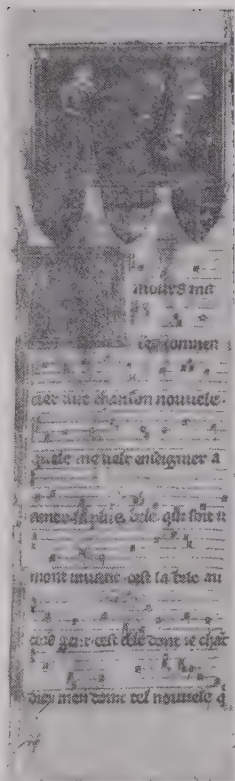 mours ma
comen
cier une chanson nouuele.
quele me uelt enseignier a
amer la plus bele qui soit u
mont uiuant cest la bele au
cors gent cest cele dont ie chāt
diex men doint tel nouuele q̄